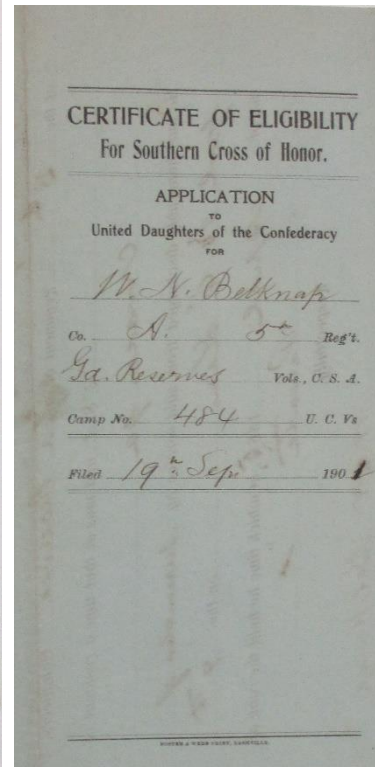 CERTIFICATE OF ELIGIBILITY
For Southern Cross of Honor.
APPLICATION
TO
United Daughters of the Confederacy
FOR
W. N. Belknap
Co. A. 5th Reg't.
Ga. Reserves Vols., C. S. A.
Camp No. 484 U. C. Vs
Filed 19th Sep. 1901